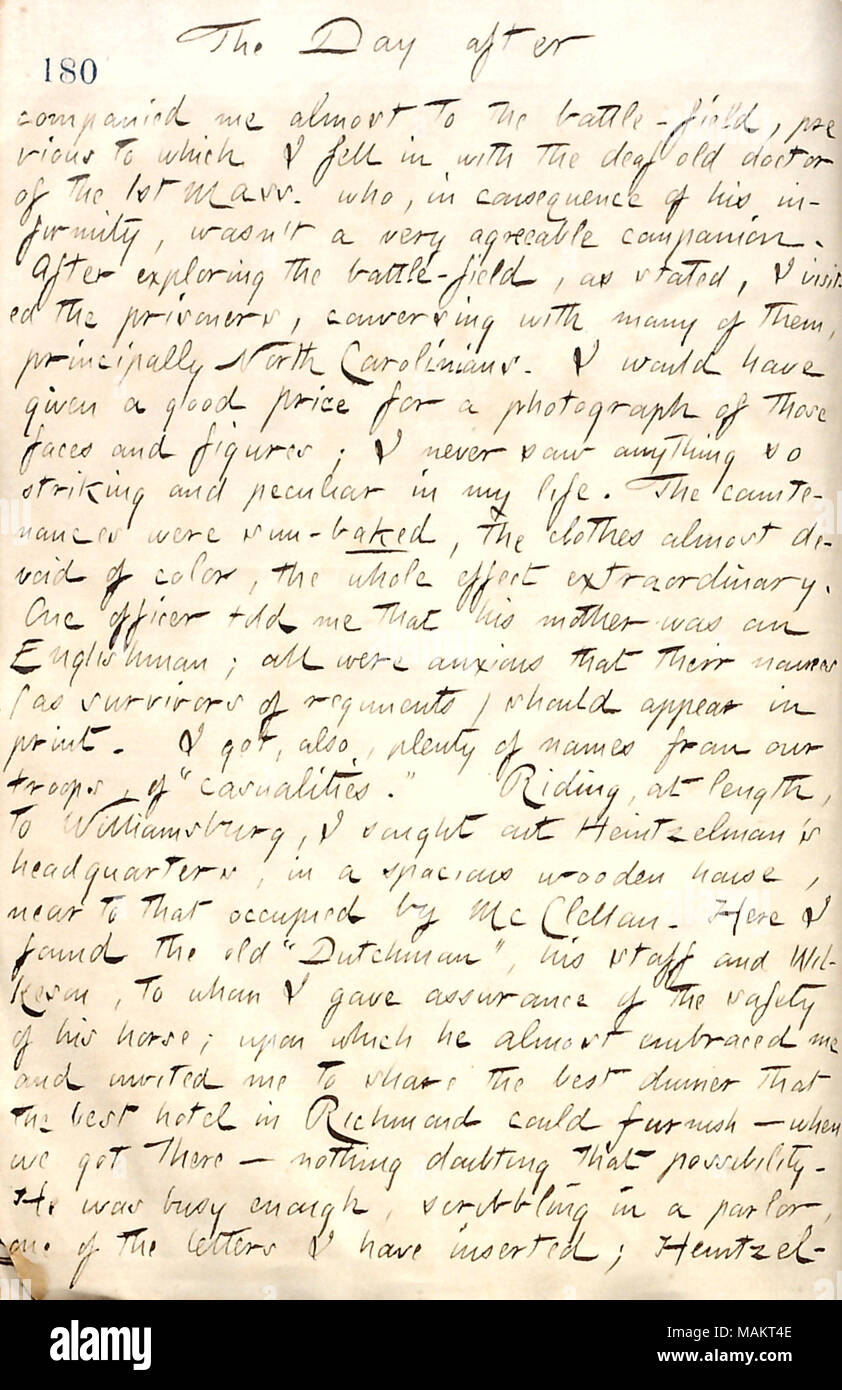 The Day after
180
companied me almost to the battle-field, pre
vious to which I fell in with the deaf old doctor
of the 1st Mass. who, in consequence of his in-
firmity, wasn't a very agreeable companion.
After exploring the battle-field, as stated, I visit-
ed the prisoners, conversing with many of them,
principally North Carolinians. I would have
given a good price for a photograph of those
faces and figures; I never saw anything so
striking and peculiar in my life. The counte-
nances were sun-baked, the clothes almost de-
void of color, the whole effect extraordinary.
One officer told me that his mother was an
Englishman; all were anxious that their names
(as survivors of regiments) should appear in
print. I got, also, plenty of names from our
troops, of "casualities." Riding, at length,
to Williamsburg, I sought out Heintzelman's
headquarters, in a spacious wooden house,
near to that occupied by McClellan. Here I
found the old "Dutchman", his staff and Wil-
keson, to whom I gave assurance of the safety
of his horse; upon which he almost embraced me
and invited me to share the best dinner that
the best hotel in Richmond could furnish — when
we got there — nothing doubting that possibility.
He was busy enough, scribbling in a parlor,
one of the letters I have inserted; Heintzel-
alamy
Image ID: MAKT4E
www.alamy.com